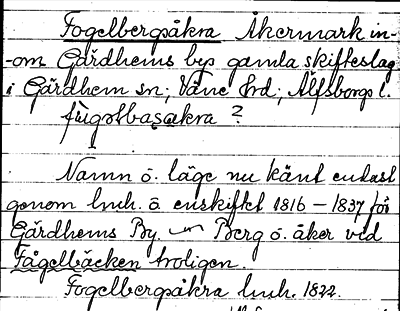 Fogelbergsåkra Åkermark in-
-om Gärdhems bys gamla skifteslag
i Gärdhem sn; Väne Hrd; Älfsborgs l.
fùgəlbaṣakra ?
Namn o. läge nu känt endast
genom hnh. o enskiftet 1816 – 1837 för
Gärdhems By. Berg o. åker vid
Fågelbäcken troligen.
Fogelbergsåkra hnh. 1822.